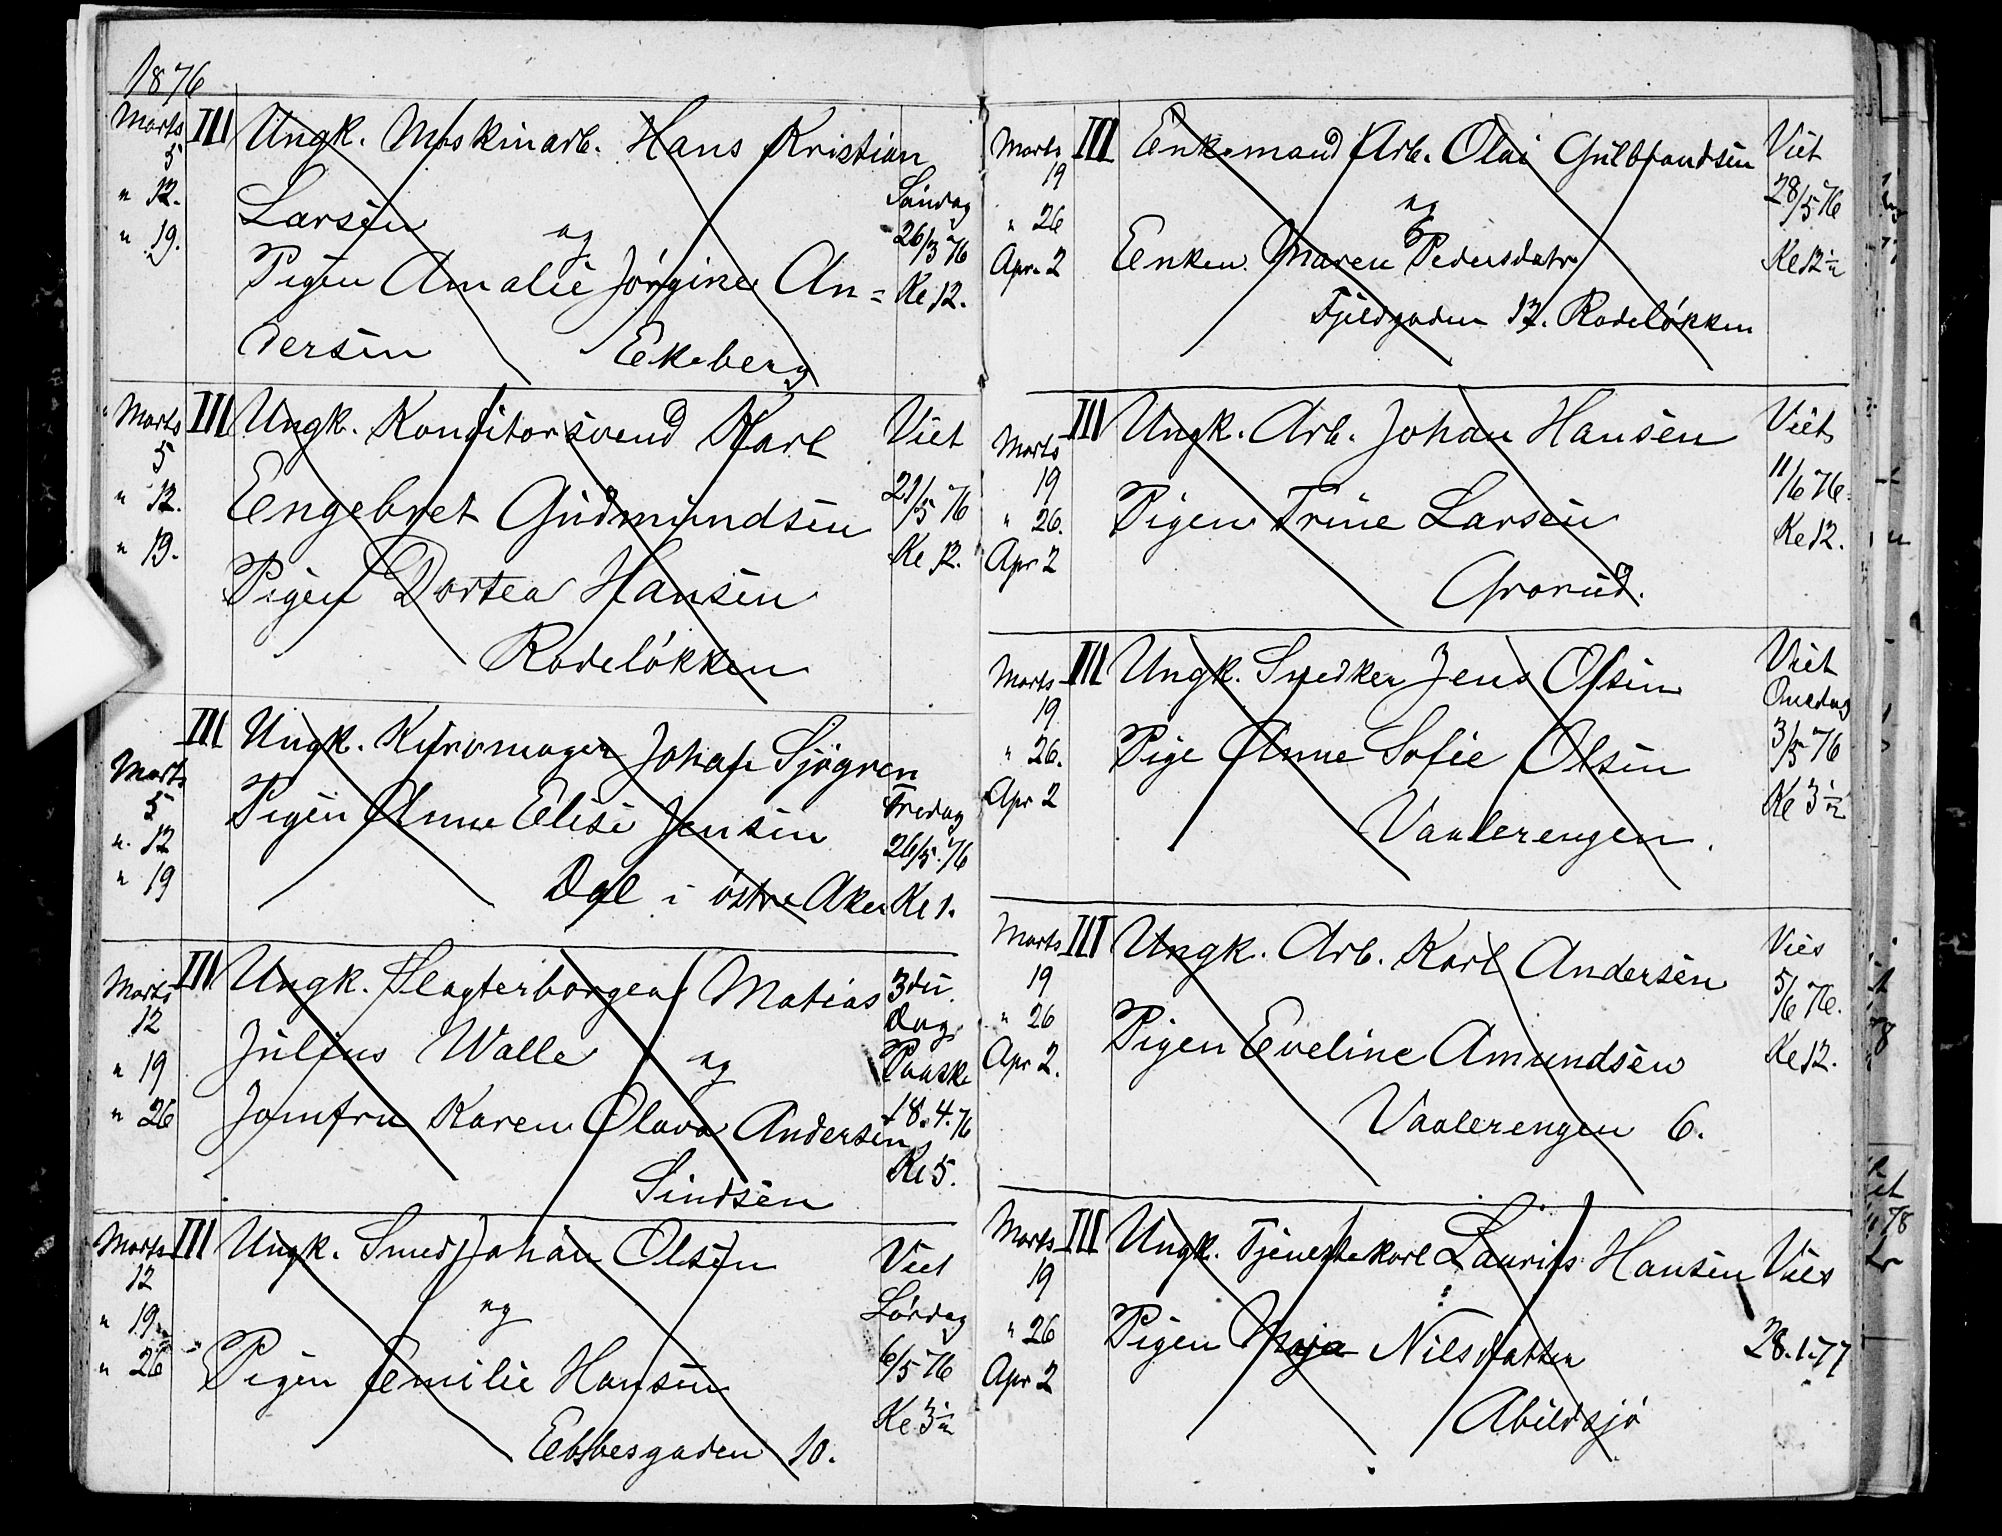 1876
Marts III Ungk. Maskinarb. Hans Kristian
5
" 12. Larsen Søndag
og 26/3 76
" 19. Pigen Amalie Jørgine An= Kl 12.
dersen Ekeberg
Marts III Ungk. Konditorsvend Karl Viet
5
" 12. Engebret Gudmundsen 21/5 76
" 19. Pigen Dortea Hansen Kl 12.
Rodeløkken
III Ungk. Johan Sjøgren
Marts
5 Pigen Anne Elise Jensen Fredag
" 12 26/5.76
" 19 i østre Aker Kl 1.
Marts III Ungk. Slagterborger Matias 3die
12 Dag
" 19 Julius Walle og Paaske
" 26 Jomfru Karen Olava Andersen 18.4.76
Sindsen Kl 5.
Marts III Ungk. Smed Johan Olsen Viet
12 og Lørdag
" 19
" 26 Pigen Emilie Hansen 6/5 76
Ebbesgaden 10. Kl 3½
Marts III Enkemand Arb. Olai Gulbrandsen Viet
19 og 28/5 76
" 26
Apr. 2 Enken Maren Pedersdatr Kl 12½
Fjeldgaden 12. Rodeløkken
Marts III Ungk. Arb. Johan Hansen Viets
19 11/6 76.
" 26. Pigen Trine Larsen Kl 12.
Apr 2
Grorud.
Marts III Ungk. Snedker Jens Olsen Viet
19 Onsdag
" 26. Pige Anne Sofie Olsen 3/5 76
Apr 2 Vaalerengen. Kl 3½
Marts III Ungk. Arb. Karl Andersen Vies
19 5/6 76.
" 26 Pigen Eveline Amundsen Kl 12.
Apr 2.
Vaalerengen 6.
Marts III Ungk. Tjenestekarl Laurits Hansen Vies
19
" 26 Pigen Maja Nilsdatter 28.1.77
Apr 2
Abildsjø